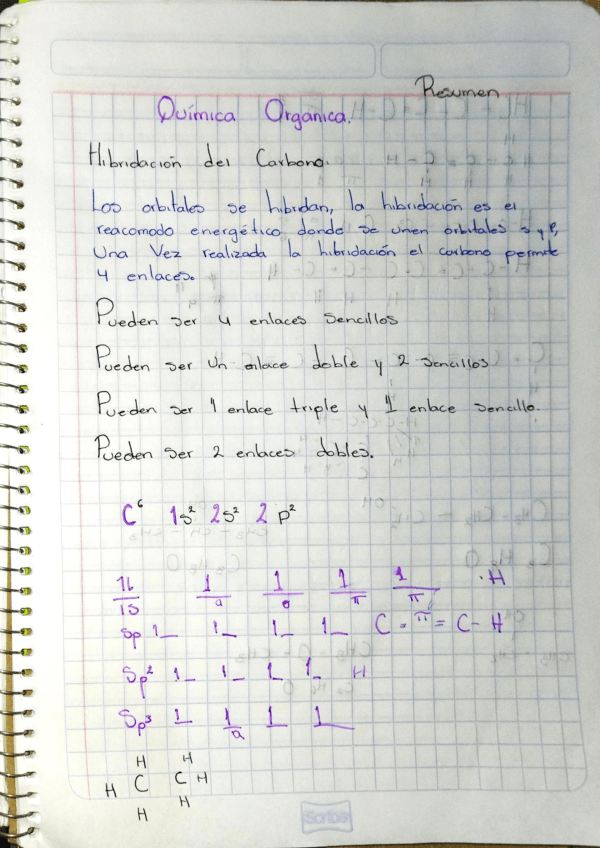 Resumen
Química Orgánica.
Hibridación del Carbono.
Los orbitales se hibridan, la hibridación es el
reacomodo energético donde se unen orbitales s y p,
Una Vez realizada la hibridación el carbono permite
4 enlaces.
Pueden ser 4 enlaces sencillos
Pueden ser un enlace doble y 2 sencillos
Pueden ser 1 enlace triple y 1 enlace sencillo.
Pueden ser 2 enlaces dobles.
C⁶ 1s² 2s² 2p²
1L 1 1 1 1 ·H
1s a π π
Sp 1 1 1 1 C = π = C - H
Sp² 1 1 1 1 H
Sp³ 1 1 1 1
a
H H
H C C H
H H
Scribe